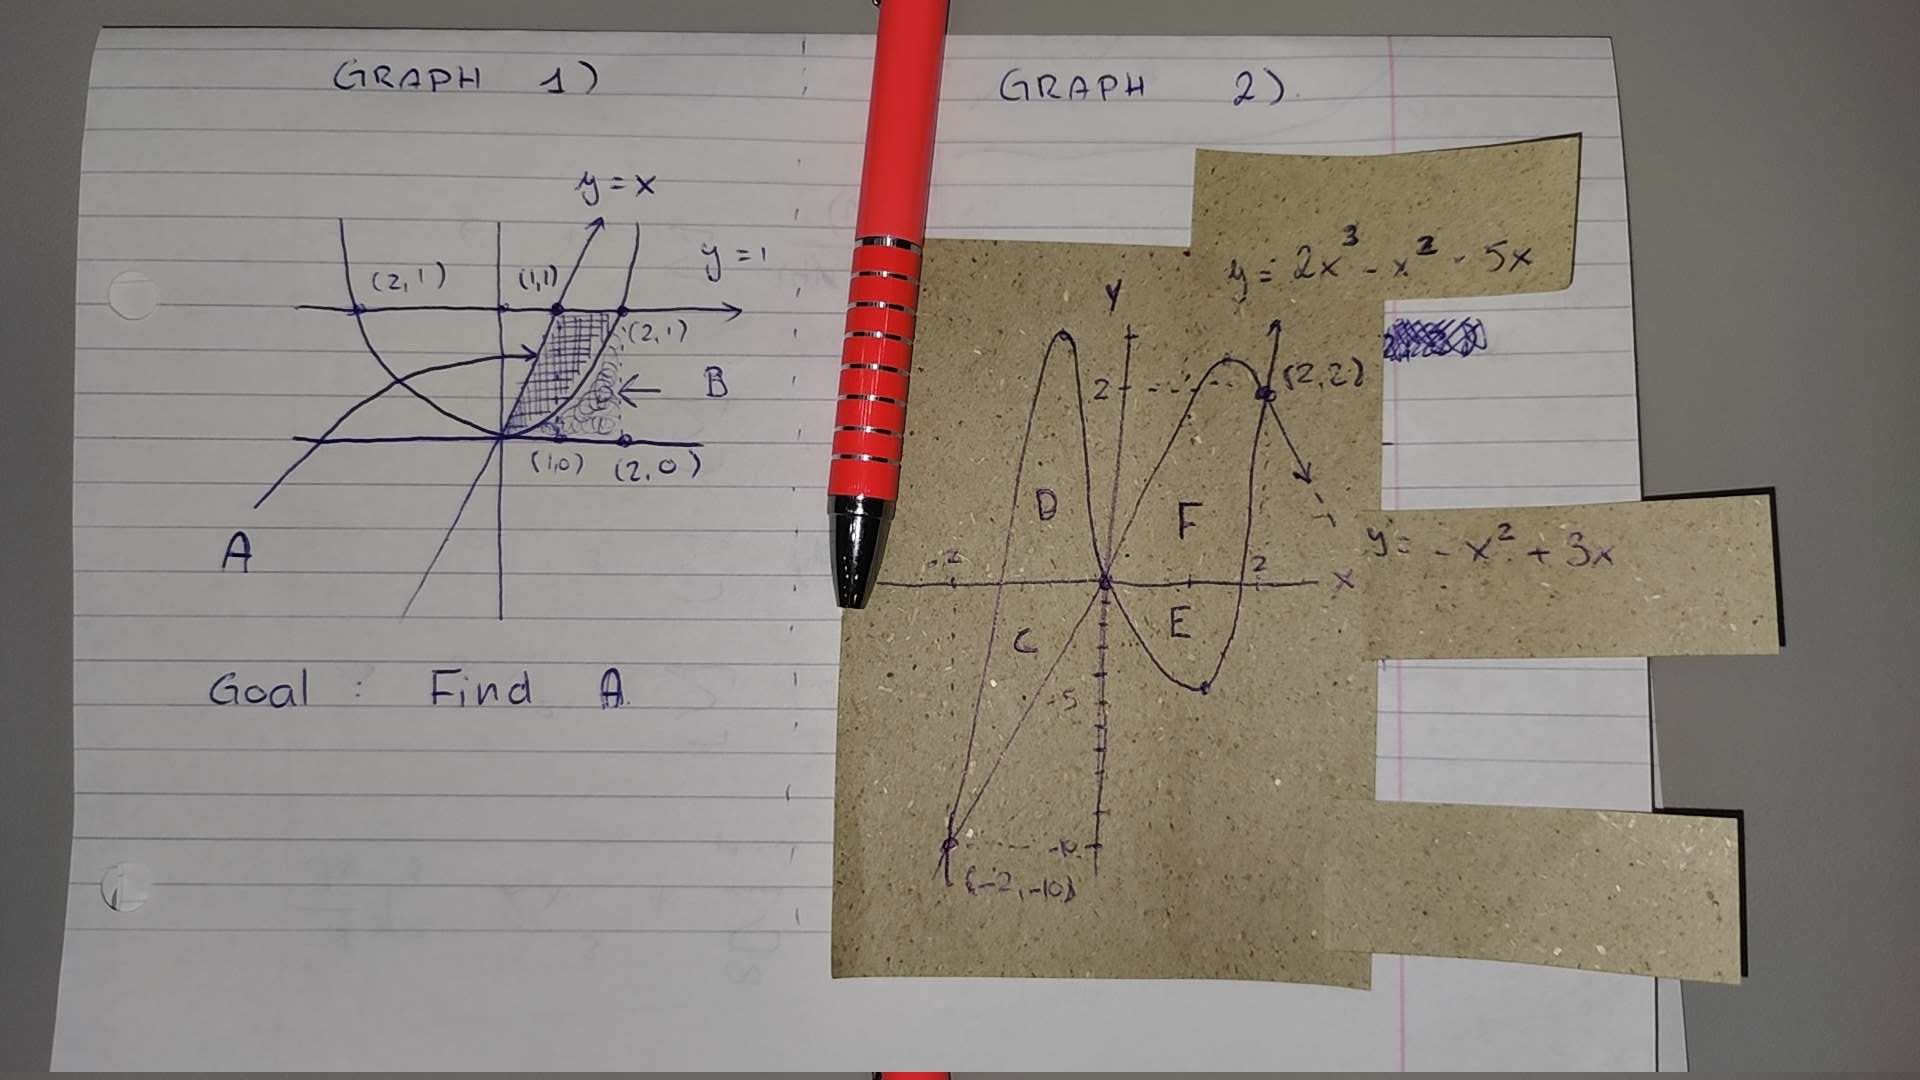 GRAPH 1)
y = x
y = 1
(2,1)
(1,1)
(2,1)
B
(1,0)
(2,0)
A
Goal : Find A
GRAPH 2)
y = 2x³ - x² - 5x
y
2
(2,2)
D
F
y = - x² + 3x
-2
2
x
C
E
-5
-10
(-2,-10)